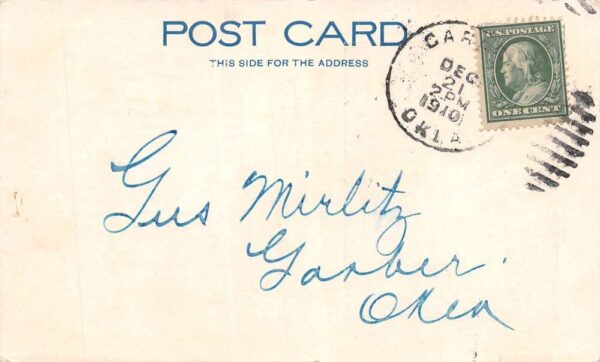 POST CARD
THIS SIDE FOR THE ADDRESS
CAR
DEC
21
2 PM
1910
OKLA
U.S. POSTAGE
ONE CENT
Gus Mirlitz
Garber.
Okla